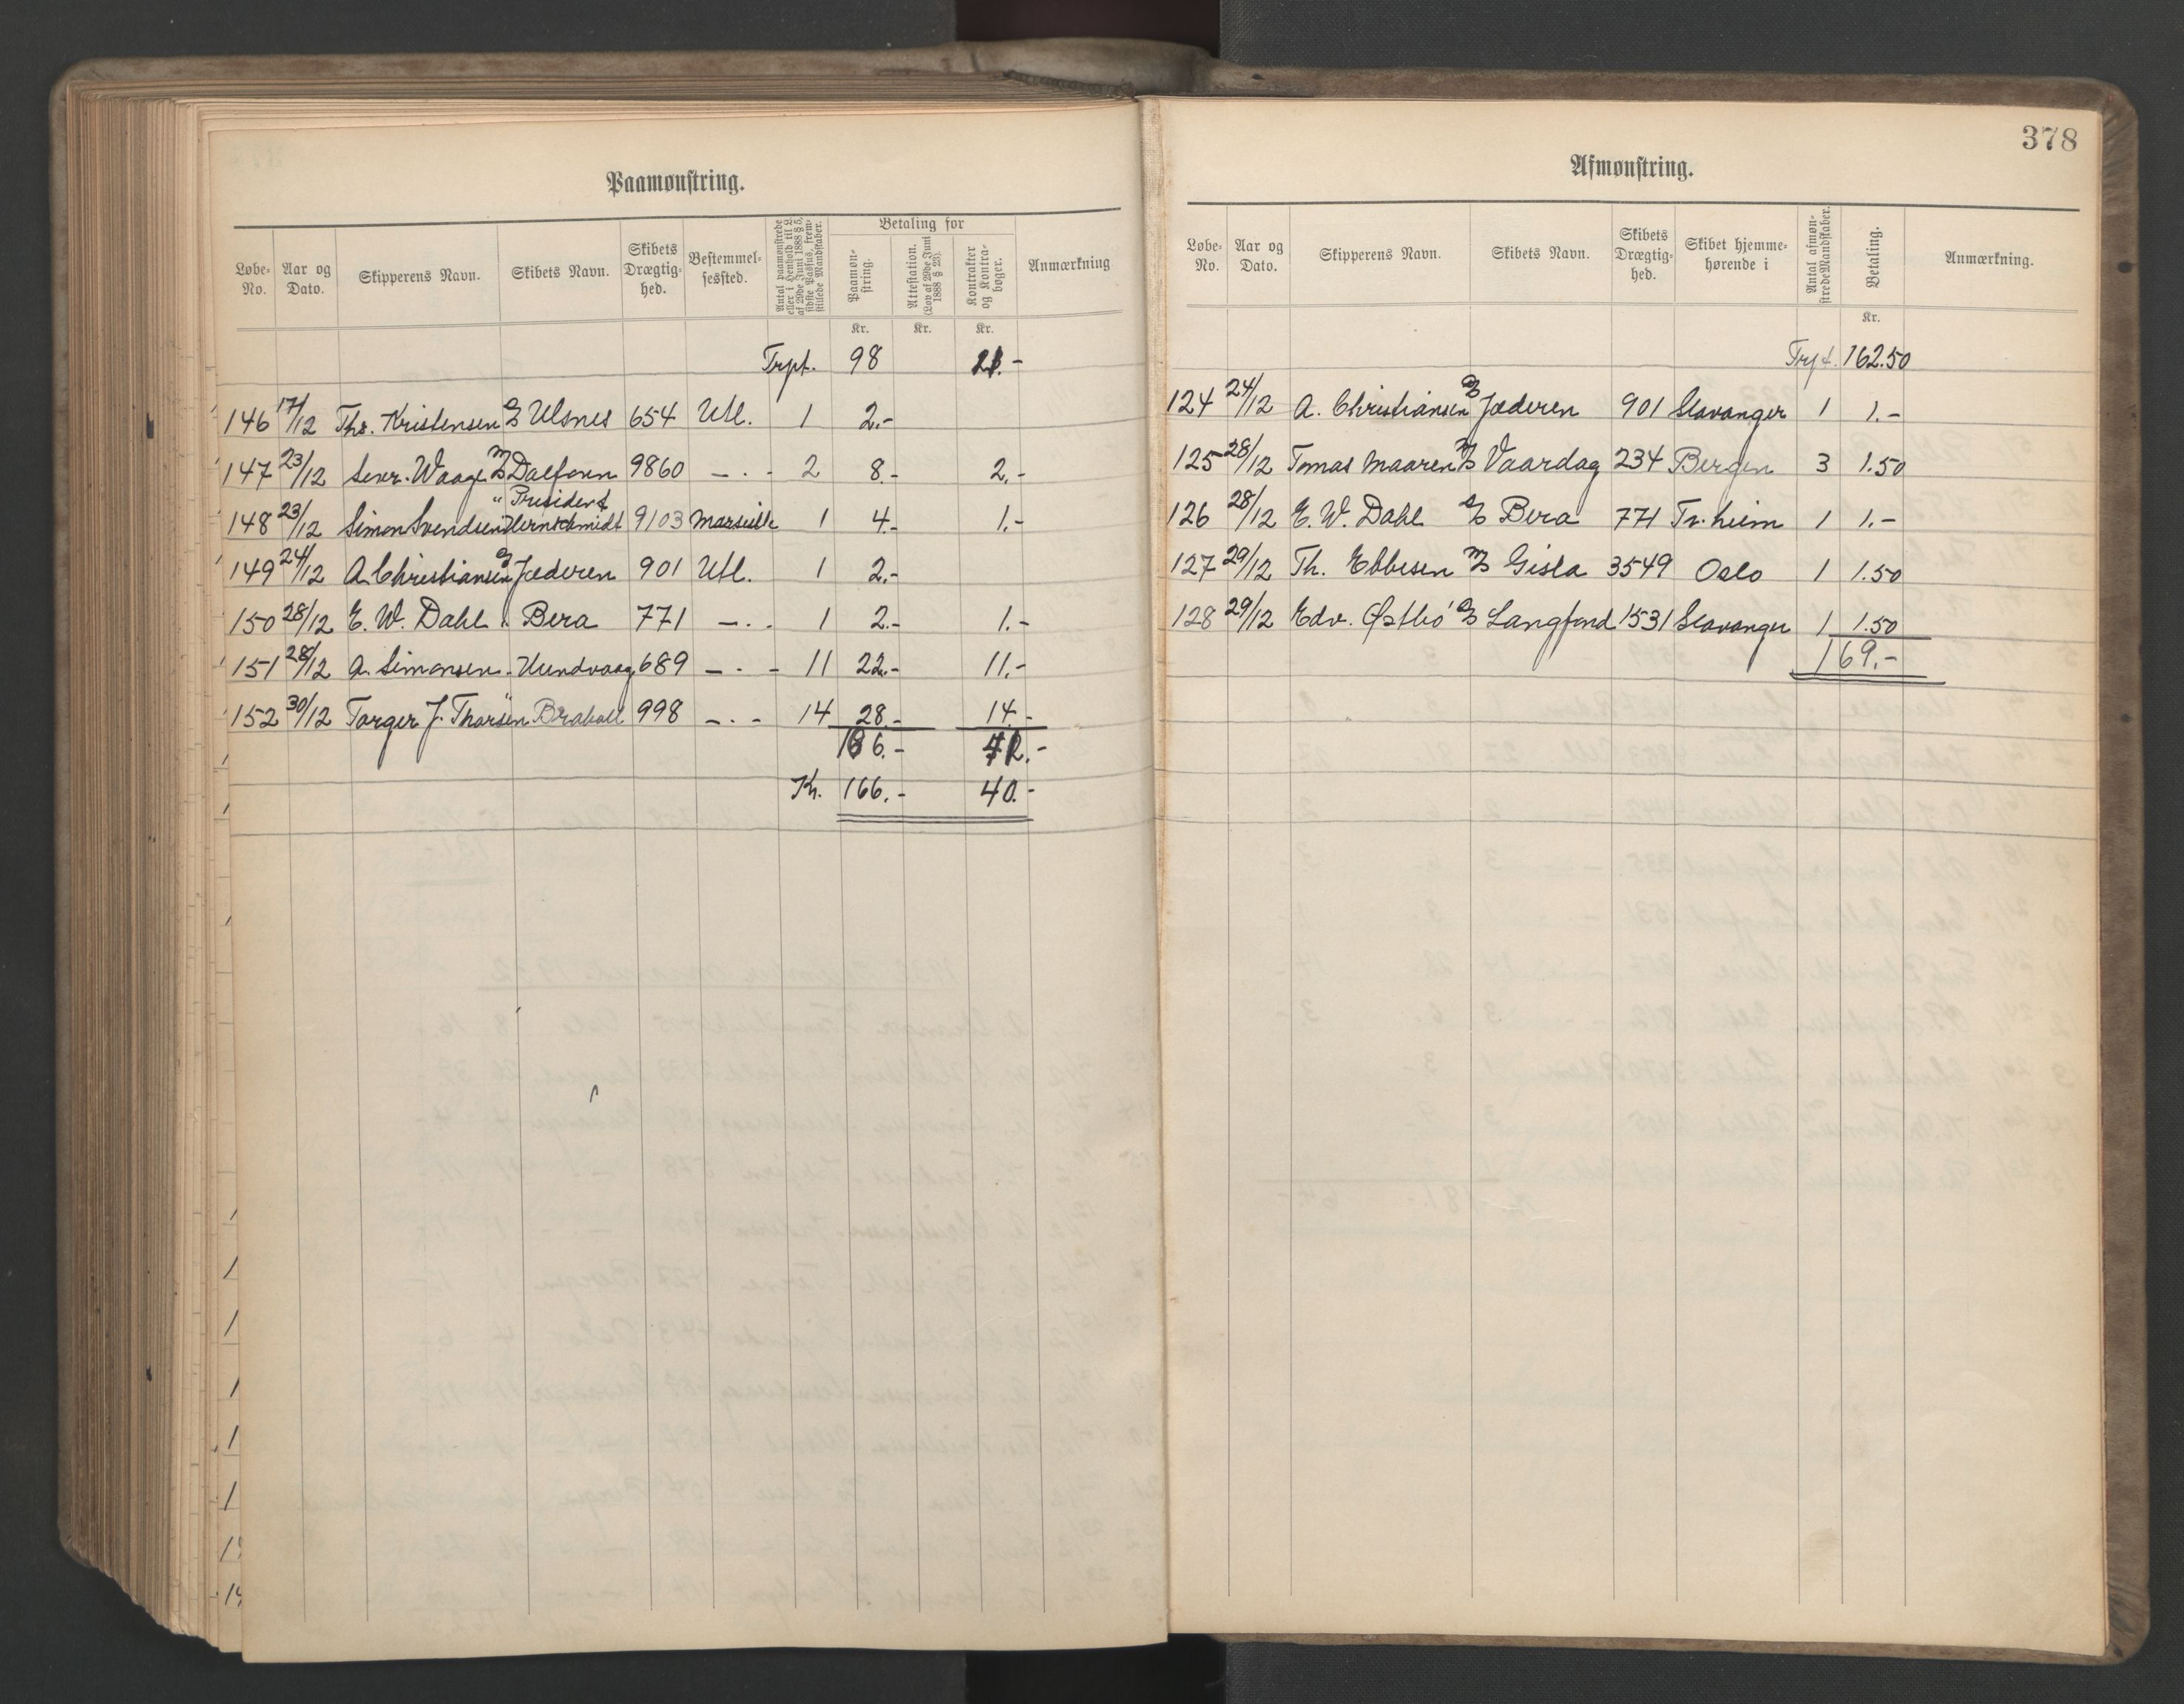 Paamønstring.
Løbe-No. Aar og Dato. Skipperens Navn. Skibets Navn. Skibets Drægtig-hed. Bestemmel-sessted. Antal paamønstrede eller i Henhold til L. af 29de Juni 1888 § 5, sidste Passus, frem-stillede Mandskaber. Betaling for Paamøn-string. Attestation. (Lov af 29de Juni 1888 § 23). Kontrakter og Kontra-bøger. Anmærkning
Kr. Kr. Kr.
Trpt. 98 21.-
146 17/12 Ths. Kristensen D/S Ulsnes 654 Utl. 1 2.-
147 23/12 Sevr. Waage M/S Dalfonn 9860 -.- 2 8.- 2.-
" President
148 23/12 Simon Svendsen 9103 Marseille 1 4.- 1.-
149 24/12 A. Christiansen D/S Jæderen 901 Utl. 1 2.-
150 28/12 E. W. Dahl " Bera 771 -.- 1 2.- 1.-
151 28/12 A. Simonsen " Hundvaag 689 -.- 11 22.- 11.-
152 30/12 Torger J. Thorsen " Braball 998 -.- 14 28.- 14.-
Kr. 166.- 40.-
378
Afmønstring.
Løbe-No. Aar og Dato. Skipperens Navn. Skibets Navn. Skibets Drægtig-hed. Skibet hjemme-hørende i Antal afmøn-strede Mandskaber. Betaling. Anmærkning.
Kr.
Trpt. 162.50
124 24/12 A. Christiansen D/S Jæderen 901 Stavanger 1 1.-
125 28/12 Tomas Maaren M/S Vaardag 234 Bergen 3 1.50
126 28/12 E. W. Dahl D/S Bera 771 Tr.heim 1 1.-
127 29/12 Th. Ebbesen M/S Gisla 3549 Oslo 1 1.50
128 29/12 Edv. Østbö D/S Langfond 1531 Stavanger 1 1.50
169.-